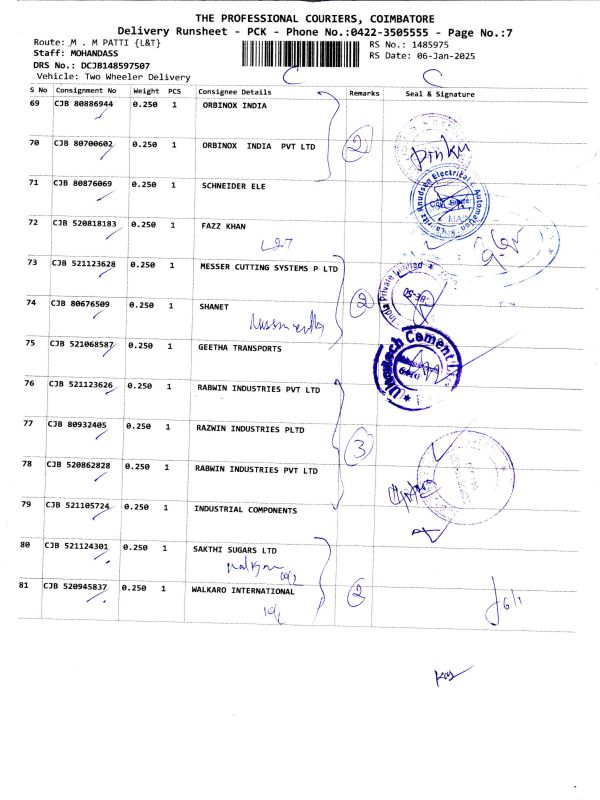 THE PROFESSIONAL COURIERS, COIMBATORE
Delivery Runsheet - PCK - Phone No.:0422-3505555 - Page No.:7
Route: M . M PATTI {L&T} RS No.: 1485975
Staff: MOHANDASS RS Date: 06-Jan-2025
DRS No.: DCJB148597507
Vehicle: Two Wheeler Delivery
S No Consignment No Weight PCS Consignee Details Remarks Seal & Signature
69 CJB 80886944 0.250 1 ORBINOX INDIA
70 CJB 80700602 0.250 1 ORBINOX INDIA PVT LTD 2
Pinku
71 CJB 80876069 0.250 1 SCHNEIDER ELE
72 CJB 520818183 0.250 1 FAZZ KHAN
L27
73 CJB 521123628 0.250 1 MESSER CUTTING SYSTEMS P LTD
74 CJB 80676509 0.250 1 SHANET 2
75 CJB 521068587 0.250 1 GEETHA TRANSPORTS
Ultratech Cement
76 CJB 521123626 0.250 1 RABWIN INDUSTRIES PVT LTD
77 CJB 80932405 0.250 1 RAZWIN INDUSTRIES PLTD 3
78 CJB 520862828 0.250 1 RABWIN INDUSTRIES PVT LTD
79 CJB 521105724 0.250 1 INDUSTRIAL COMPONENTS
80 CJB 521124301 0.250 1 SAKTHI SUGARS LTD
81 CJB 520945837 0.250 1 WALKARO INTERNATIONAL 2